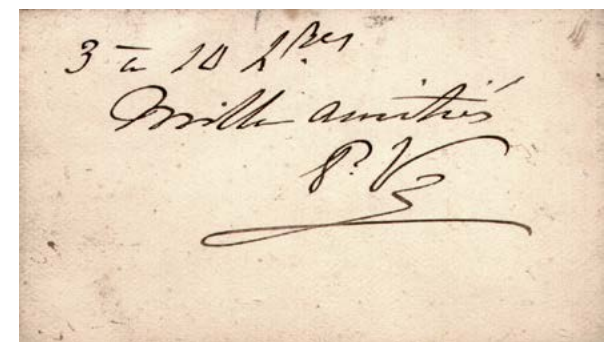 3 à 10 h.res
Mille amitiés
P. V